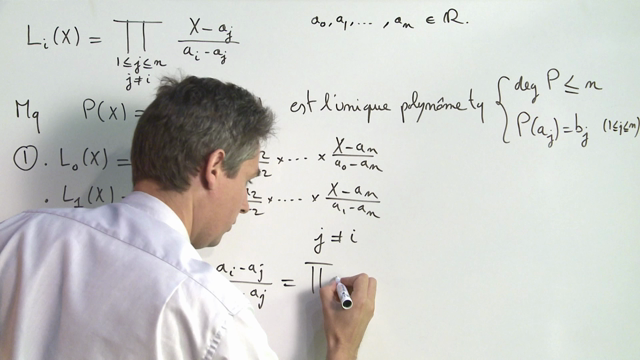 Lᵢ(X) = ∏ (X-aⱼ)/(aᵢ-aⱼ) a₀, a₁, ..., aₙ ∈ ℝ.
1≤j≤n
j≠i
Mq P(X) = est l'unique polynôme tq { deg P ≤ n
P(aⱼ)=bⱼ (1≤j≤n)
① . L₀(X) = x .... x (X-aₙ)/(a₀-aₙ)
. L₁(X) x .... x (X-aₙ)/(a₁-aₙ)
j ≠ i
aᵢ-aⱼ / aⱼ = ∏